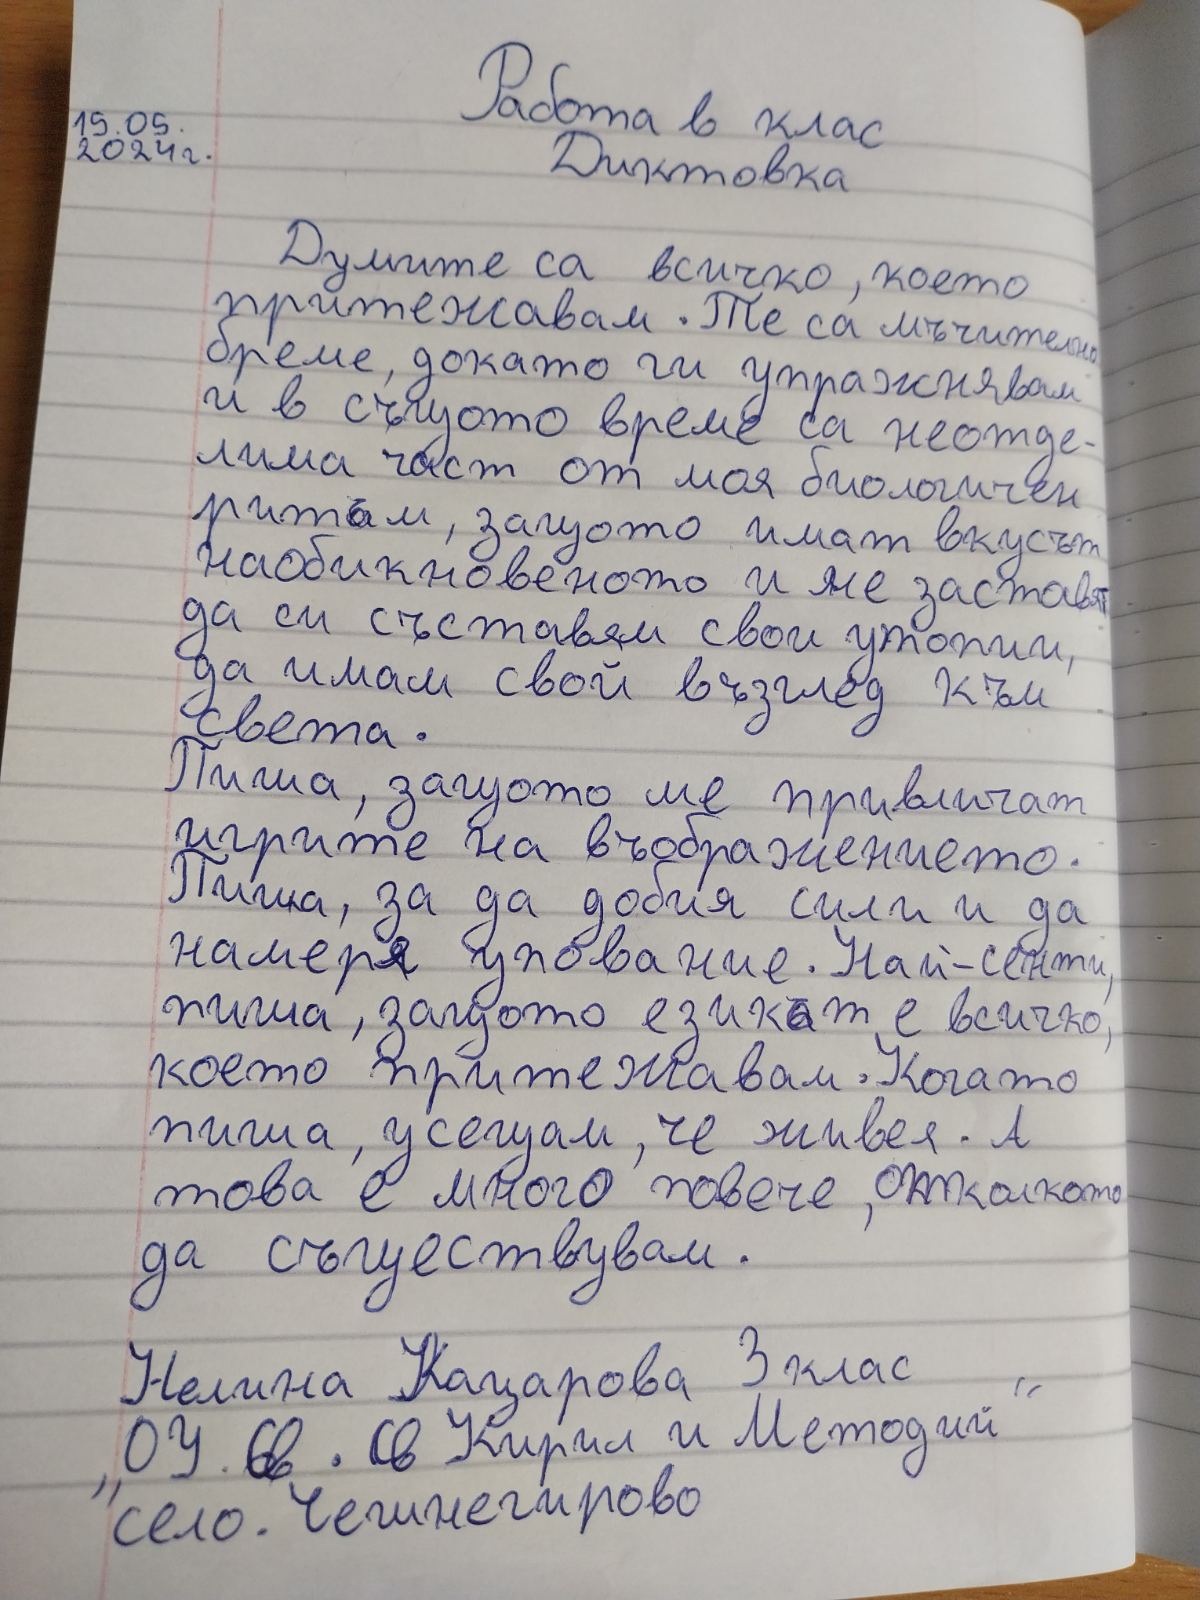 Работа в клас
15.05.
2024г.
Диктовка
Думите са всичко, което
притежавам. Те са мъчително
бреме, докато ги упражнявам
и в същото време са неотде-
лима част от моя биологичен
ритъм, защото имат вкусът
наобикновеното и ме заставят
да си съставям свои утопии,
да имам свой възглед към
света.
Пиша, защото ме привличат
игрите на въображението.
Пиша, за да добия сили и да
намеря упование. Най-сенти,
пиша, защото езикът е всичко,
което притежавам. Когато
пиша, усещам, че живея. А
това е много повече, отколкото
да съществувам.
Нелина Кацарова 3 клас
„ОУ Св. Св Кирил и Методий“
село. Чешнегирово